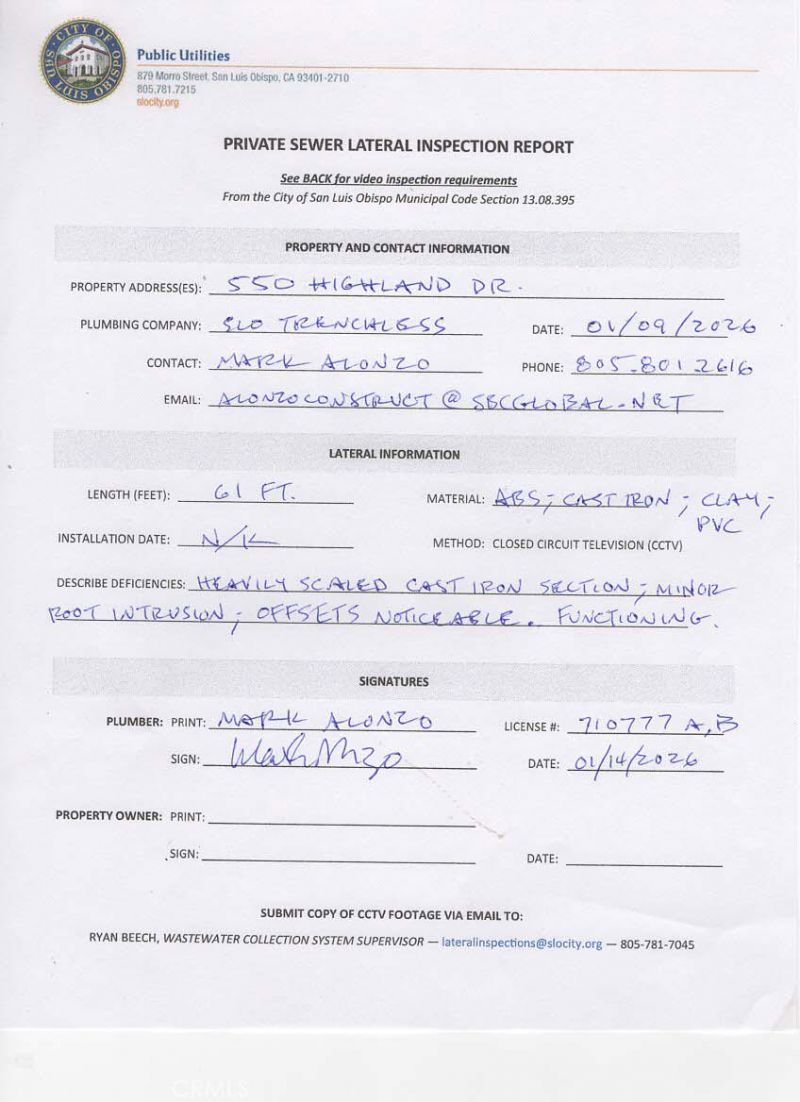 CITY OF SAN LUIS OBISPO
Public Utilities
879 Morro Street, San Luis Obispo, CA 93401-2710
805.781.7215
slocity.org
PRIVATE SEWER LATERAL INSPECTION REPORT
See BACK for video inspection requirements
From the City of San Luis Obispo Municipal Code Section 13.08.395
PROPERTY AND CONTACT INFORMATION
PROPERTY ADDRESS(ES): 550 HIGHLAND DR.
PLUMBING COMPANY: SLO TRENCHLESS DATE: 01/09/2026
CONTACT: MARK ALONZO PHONE: 805.801 2616
EMAIL: ALONZOCONSTRUCT@SBCGLOBAL.NET
LATERAL INFORMATION
LENGTH (FEET): 61 FT. MATERIAL: ABS; CAST IRON; CLAY;
PVC
INSTALLATION DATE: N/K METHOD: CLOSED CIRCUIT TELEVISION (CCTV)
DESCRIBE DEFICIENCIES: HEAVILY SCALED CAST IRON SECTION; MINOR
ROOT INTRUSION; OFFSETS NOTICEABLE. FUNCTIONING.
SIGNATURES
PLUMBER: PRINT: MARK ALONZO LICENSE #: 710777 A,B
SIGN: DATE: 01/14/2026
PROPERTY OWNER: PRINT:
SIGN: DATE:
SUBMIT COPY OF CCTV FOOTAGE VIA EMAIL TO:
RYAN BEECH, WASTEWATER COLLECTION SYSTEM SUPERVISOR — lateralinspections@slocity.org — 805-781-7045
CRMLS